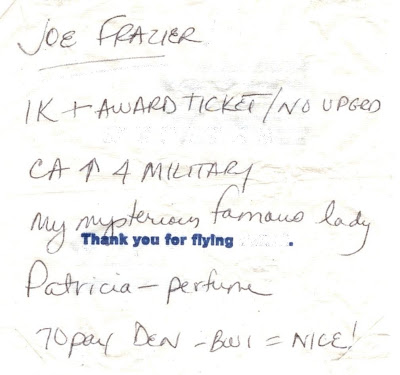 JOE FRAZIER
1K + AWARD TICKET/NO UPGRD
CA ↑ 4 MILITARY
My mysterious famous lady
Thank you for flying .
Patricia - perfume
70pay DEN - BWI = NICE!